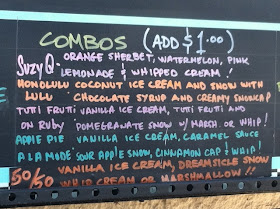 COMBOS (ADD $1.00)
SuzyQ- ORANGE SHERBET, WATERMELON, PINK
LEMONADE & WHIPPED CREAM!
HONOLULU COCONUT ICE CREAM AND SNOW WITH
LULU CHOCOLATE SYRUP AND CREAMY SNOCAP
TUTTI FRUTTI VANILLA ICE CREAM,
ON RUBY POMEGRANATE SNOW W/ MARSH. OR WHIP!
APPLE PIE VANILLA ICE CREAM, CARAMEL SAUCE
A LA MODE SOUR APPLE SNOW, CINNAMON CAP & WHIP!
50/50 VANILLA ICE CREAM, DREAMSICLE SNOW
WHIP CREAM OR MARSHMALLOW!!